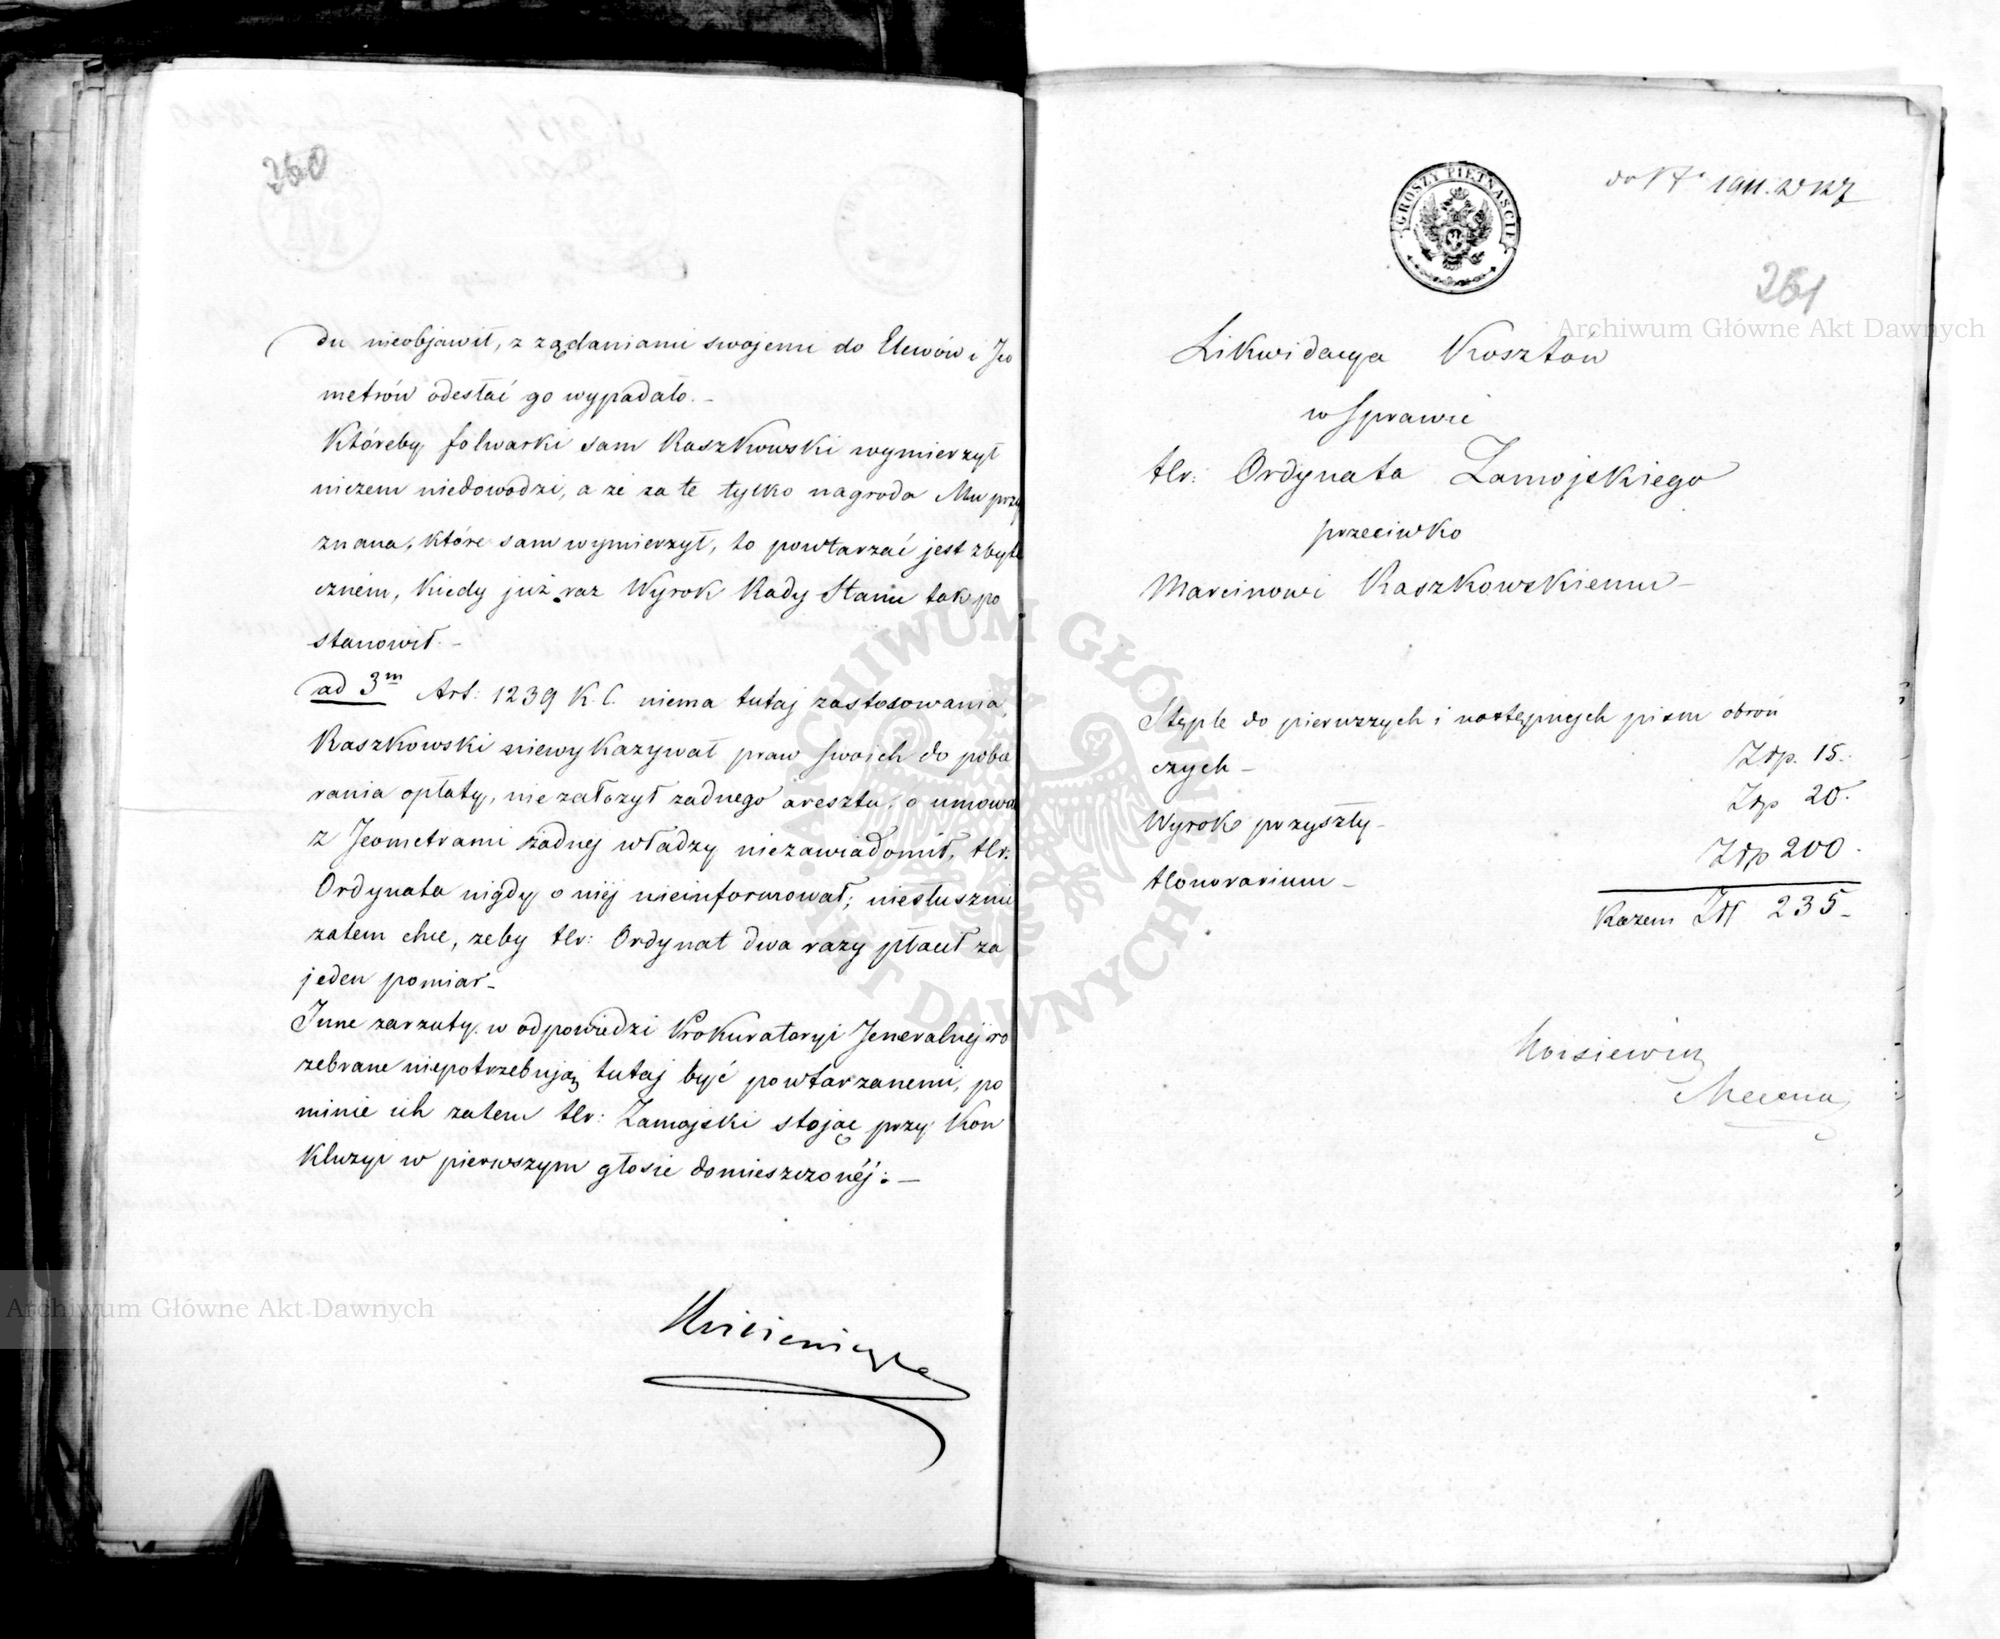 260
du nieobjawił, z żądaniami swojemi do Elewów i Jeo
metrów odesłać go wypadało. –
Któreby folwarki sam Raszkowski wymierzył
niczem niedowodzi, a że za te tylko nagroda Mu przy
znana, które sam wymierzył, to powtarzać jest zbyte
cznem, kiedy już raz Wyrok Rady Stanu tak po
stanowił. –
ad 3m Art: 1239 K. C. niema tutaj zastosowania,
Raszkowski niewykazywał praw swoich do pobie
rania opłaty, nie założył żadnego aresztu, o umowie
z Jeometrami żadnej władzy niezawiadomił, Hr:
Ordynata nigdy o niéj nieinformował; niesłusznie
zatem chce, żeby Hr: Ordynat dwa razy płacił za
jeden pomiar –
Inne zarzuty w odpowiedzi Prokuratoryi Jeneralnej ro
zebrane niepotrzebują tutaj być powtarzanemi, po
minie ich zatem Hr: Zamojski stojąc przy Kon
kluzyi w pierwszym głosie domieszczonéj: –
GROSZY PIĘTNAŚCIE
261
Likwidacya Kosztów
w Sprawie
Hr: Ordynata Zamojskiego
przeciwko
Marcinowi Raszkowskiemu –
Stęple do pierwszych i następnych pism obroń
czych – Złp. 15.
Wyrok przyszły – Złp 20.
Honorarium – Złp 200.
Razem Złp 235 –
Archiwum Główne Akt Dawnych
Archiwum Główne Akt Dawnych
ARCHIWUM GŁÓWNE AKT DAWNYCH